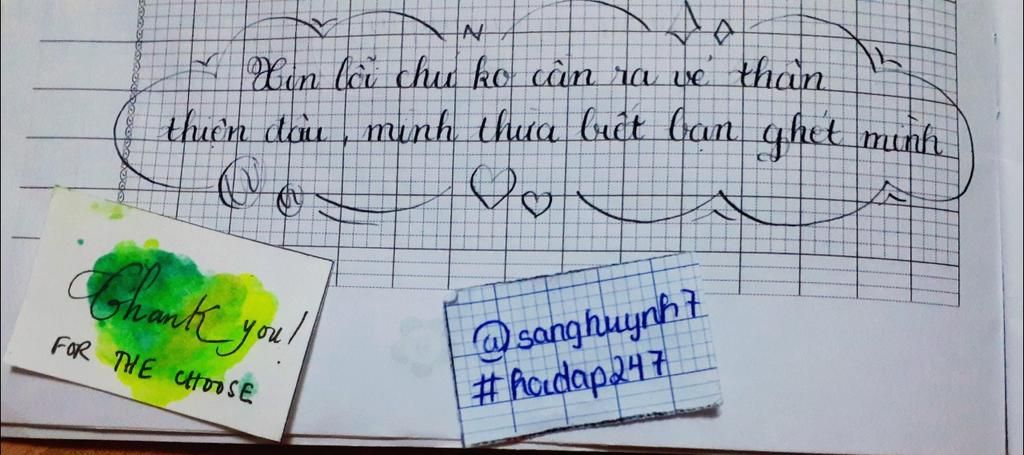 Xin lỗi chứ ko cần ra vẻ thân
thiện đâu, mình thừa biết bạn ghét mình
Thank you!
FOR THE CHOOSE
@sanghuynh7
#hoidap247